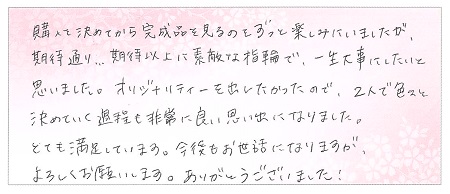 購入を決めてから完成品を見るのをずっと楽しみにいましたが、
期待通り…期待以上に素敵な指輪で、一生大事にしたいと
思いました。オリジナリティーを出したかったので、2人で色々と
決めていく過程も非常に良い思い出になりました。
とても満足しています。今後もお世話になりますが、
よろしくお願いします。ありがとうございました!